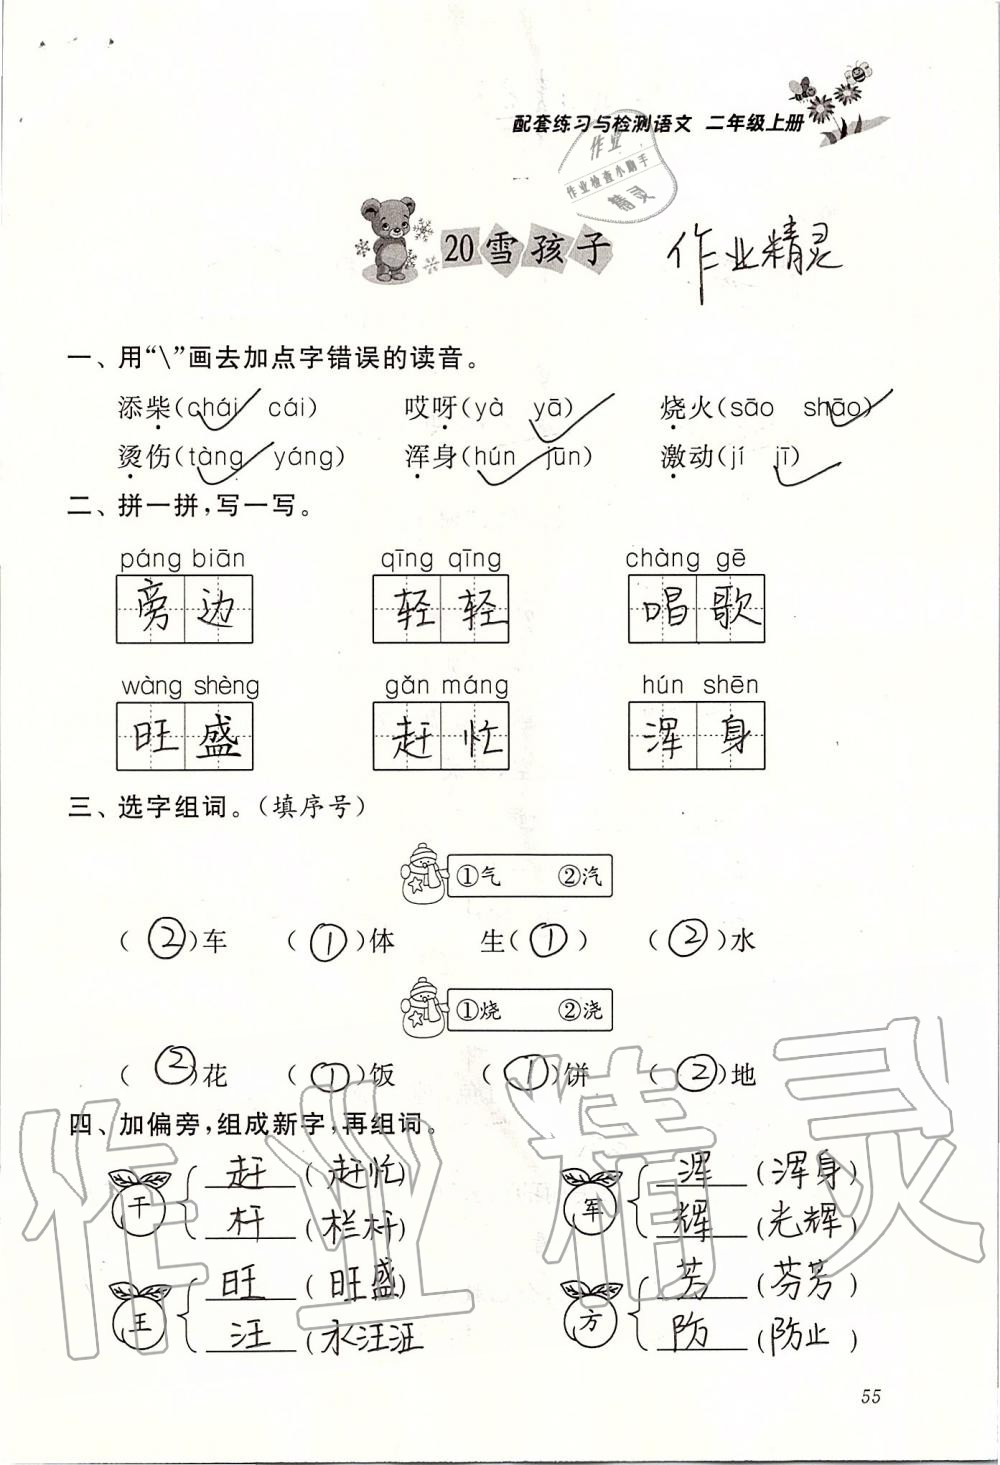 配套练习与检测语文 二年级上册
作业
作业检查小助手
精灵
20 雪孩子
作业精灵
一、用“\”画去加点字错误的读音。
添柴(chái cái) 哎呀(yà yā) 烧火(sāo shāo)
烫伤(tàng yáng) 浑身(hún jūn) 激动(jí jī)
二、拼一拼,写一写。
páng biān qīng qīng chàng gē
旁边 轻轻 唱歌
wàng shèng gǎn máng hún shēn
旺盛 赶忙 浑身
三、选字组词。(填序号)
①气 ②汽
(②)车 (①)体 生(①) (②)水
①烧 ②浇
(②)花 (①)饭 (①)饼 (②)地
四、加偏旁,组成新字,再组词。
干 赶(赶忙) 军 浑(浑身)
杆(栏杆) 辉(光辉)
王 旺(旺盛) 方 芳(芬芳)
汪(水汪汪) 防(防止)
作业精灵
55